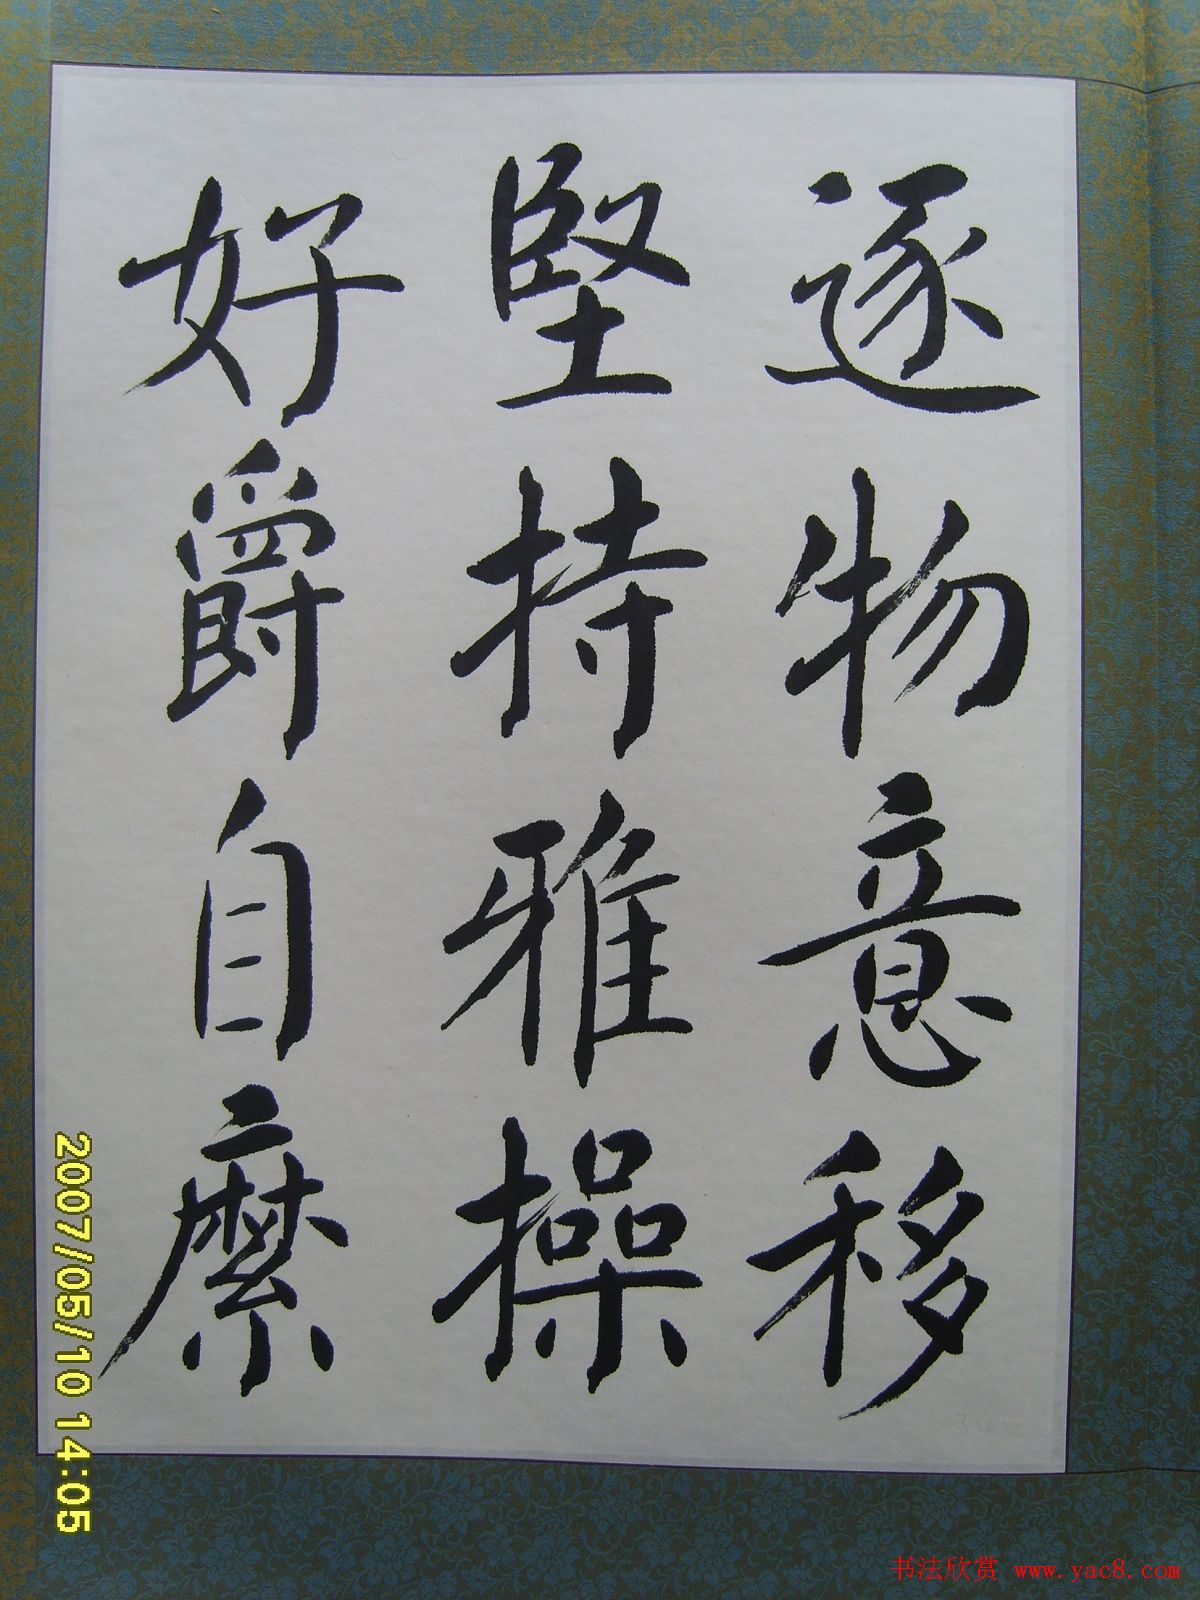 逐物意移
堅持雅操
好爵自縻
2007/05/10 14:05
书法欣赏 www.yac8.com